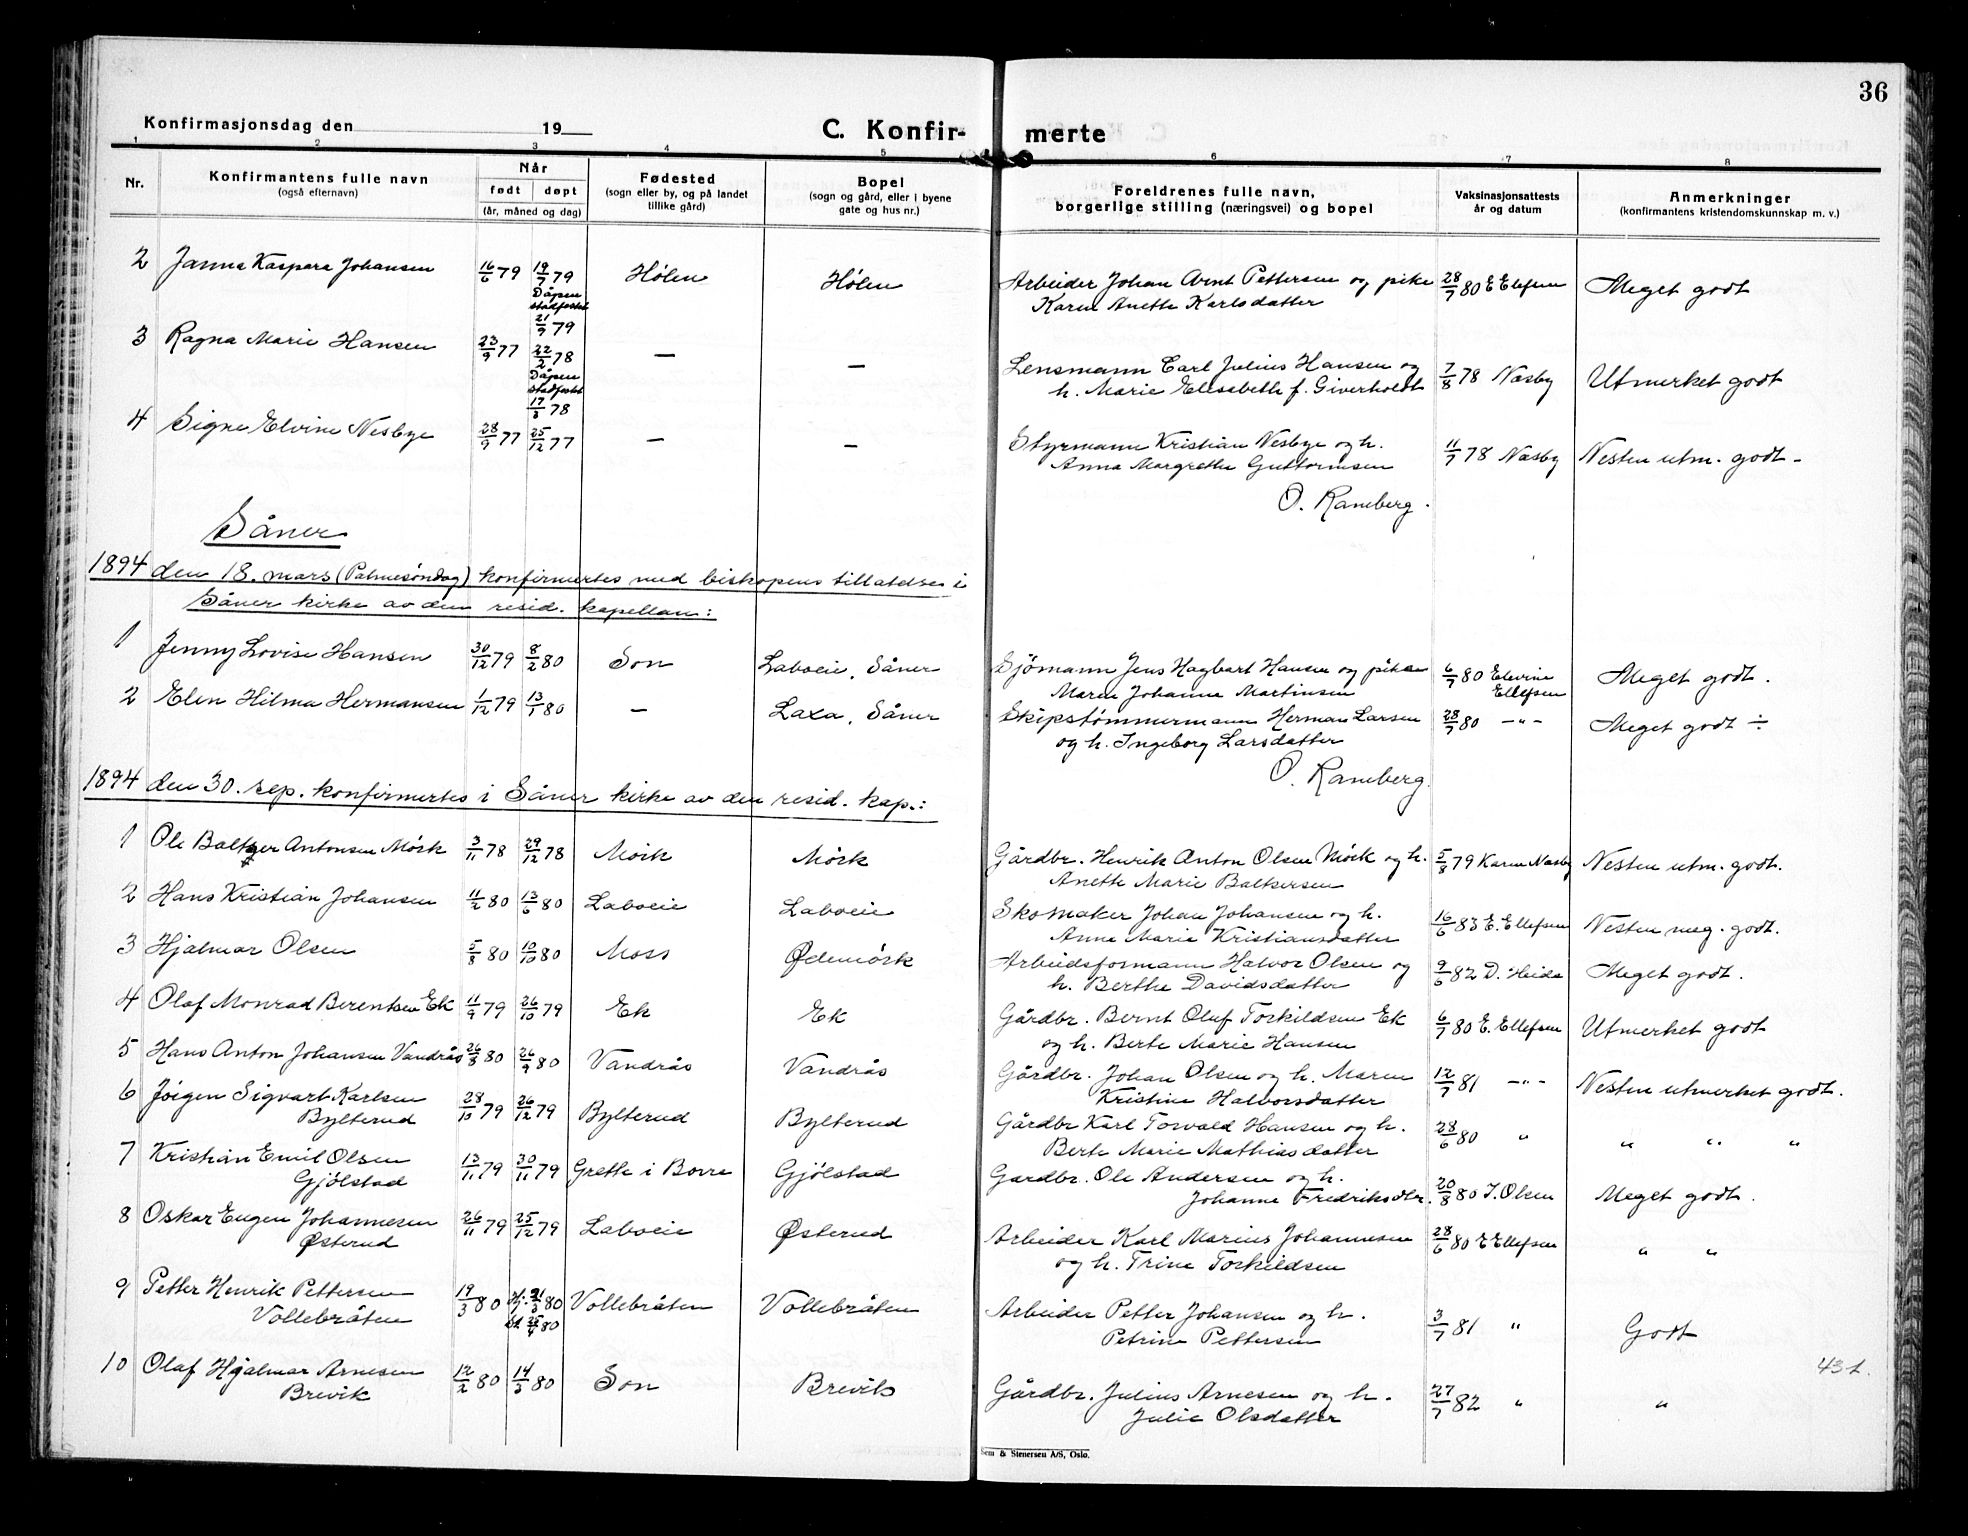 36
Konfirmasjonsdag den 19
C. Konfir- merte
1 2 3 4 5 6 7 8
Nr. Konfirmantens fulle navn (også efternavn) Når født døpt (år, måned og dag) Fødested (sogn eller by, og på landet tillike gård) Bopel (sogn og gård, eller i byene gate og hus nr.) Foreldrenes fulle navn, borgerlige stilling (næringsvei) og bopel Vaksinasjonsattests år og datum Anmerkninger (konfirmantens kristendomskunnskap m. v.)
2 Janna Kaspara Johansen 16/6 79 19/7 79 Hølen Hølen Arbeider Johan Arnt Pettersen og pike 28/7 80 E Ellefsen Meget godt
Dåpen stadfestet 21/9 79 Karen Anette Karlsdatter
3 Ragna Marie Hansen 23/9 77 22/2 78 — — Lensmann Carl Julius Hansen og 7/8 78 Næsby Utmerket godt
Dåpen stadfestet 17/3 78 h. Marie Elisabeth f. Giverholdt
4 Signe Elvine Nesbye 28/9 77 25/12 77 — — Styrmann Kristian Nesbye og h. 11/7 78 Næsby Nesten utm. godt -
Anna Margrethe Guttormsen
O. Ramberg.
Såner
1894 den 18. mars (Palmesøndag) konfirmertes med biskopens tillatelse i
Såner kirke av den resid. kapellan:
1 Jenny Lovise Hansen 30/12 79 8/2 80 Son Laboeie, Såner Sjömann Jens Hagbart Hansen og pike 6/7 80 Elevine Ellefsen Meget godt.
Maren Johanne Martinsen
2 Elen Hilma Hermansen 1/12 79 13/1 80 — Laxa, Såner Skipstømmermann Herman Larsen 28/7 80 -"- Meget godt ÷
og h. Ingeborg Larsdatter
O. Ramberg.
1894 den 30. sep. konfirmertes i Såner kirke av den resid. kap.:
1 Ole Baltzer Antonsen Mörk 3/11 78 29/12 78 Mörk Mörk Gårdbr. Henrik Anton Olsen Mörk og h. 5/8 79 Karen Næsby Nesten utm. godt.
Anette Marie Baltzersen
2 Hans Kristian Johansen 11/2 80 13/6 80 Laboeie Laboeie Skomaker Johan Johansen og h. 16/6 83 E. Ellefsen Nesten meg. godt.
Anne Marie Kristiansdatter
3 Hjalmar Olsen 5/8 80 10/10 80 Moss Ødemörk Arbeidsformann Halvor Olsen og 9/6 82 D. Heide Meget godt.
h. Berthe Davidsdatter
4 Olaf Monrad Berentsen Ek 11/9 79 26/10 79 Ek Ek Gårdbr. Bernt Oluf Torkildsen Ek 6/7 80 E. Ellefsen Utmerket godt
og h. Berte Marie Hansen
5 Hans Anton Johansen Vandrås 26/8 80 26/9 80 Vandrås Vandrås Gårdbr. Johan Olsen og h. Maren 12/7 81 -"- Nesten utmerket godt.
Kristine Halvorsdatter
6 Jörgen Sigvart Karlsen 28/10 79 26/12 79 Bylterud Bylterud Gårdbr Karl Torvald Hansen og h. 28/6 80 " " " "
Bylterud Berte Marie Mathiasdatter
7 Kristian Emil Olsen 13/11 79 30/11 79 Grette i Borre Gjölstad Gardbr. Ole Andersen og h. 20/8 80 J. Olsen Meget godt.
Gjölstad Johanne Fredriksdtr.
8 Oskar Eugen Johannesen 26/11 79 25/12 79 Laboeie Østerud Arbeider Karl Marius Johannesen 28/6 80 E Ellefsen " "
Østerud og h. Trine Torkildsen
9 Petter Henrik Pettersen 19/3 80 Hj. 21/3 80 Vollebråten Vollebråten Arbeider Petter Johansen og h. 3/7 81 " Godt
Vollebråten 80 Petrine Pettersen
10 Olaf Hjalmar Arnesen 12/2 80 14/3 80 Son Brevik Gårdbr. Julius Arnesen og h. 27/7 82 " "
Brevik Julie Olsdatter
Sem & Stenersen A/S, Oslo.